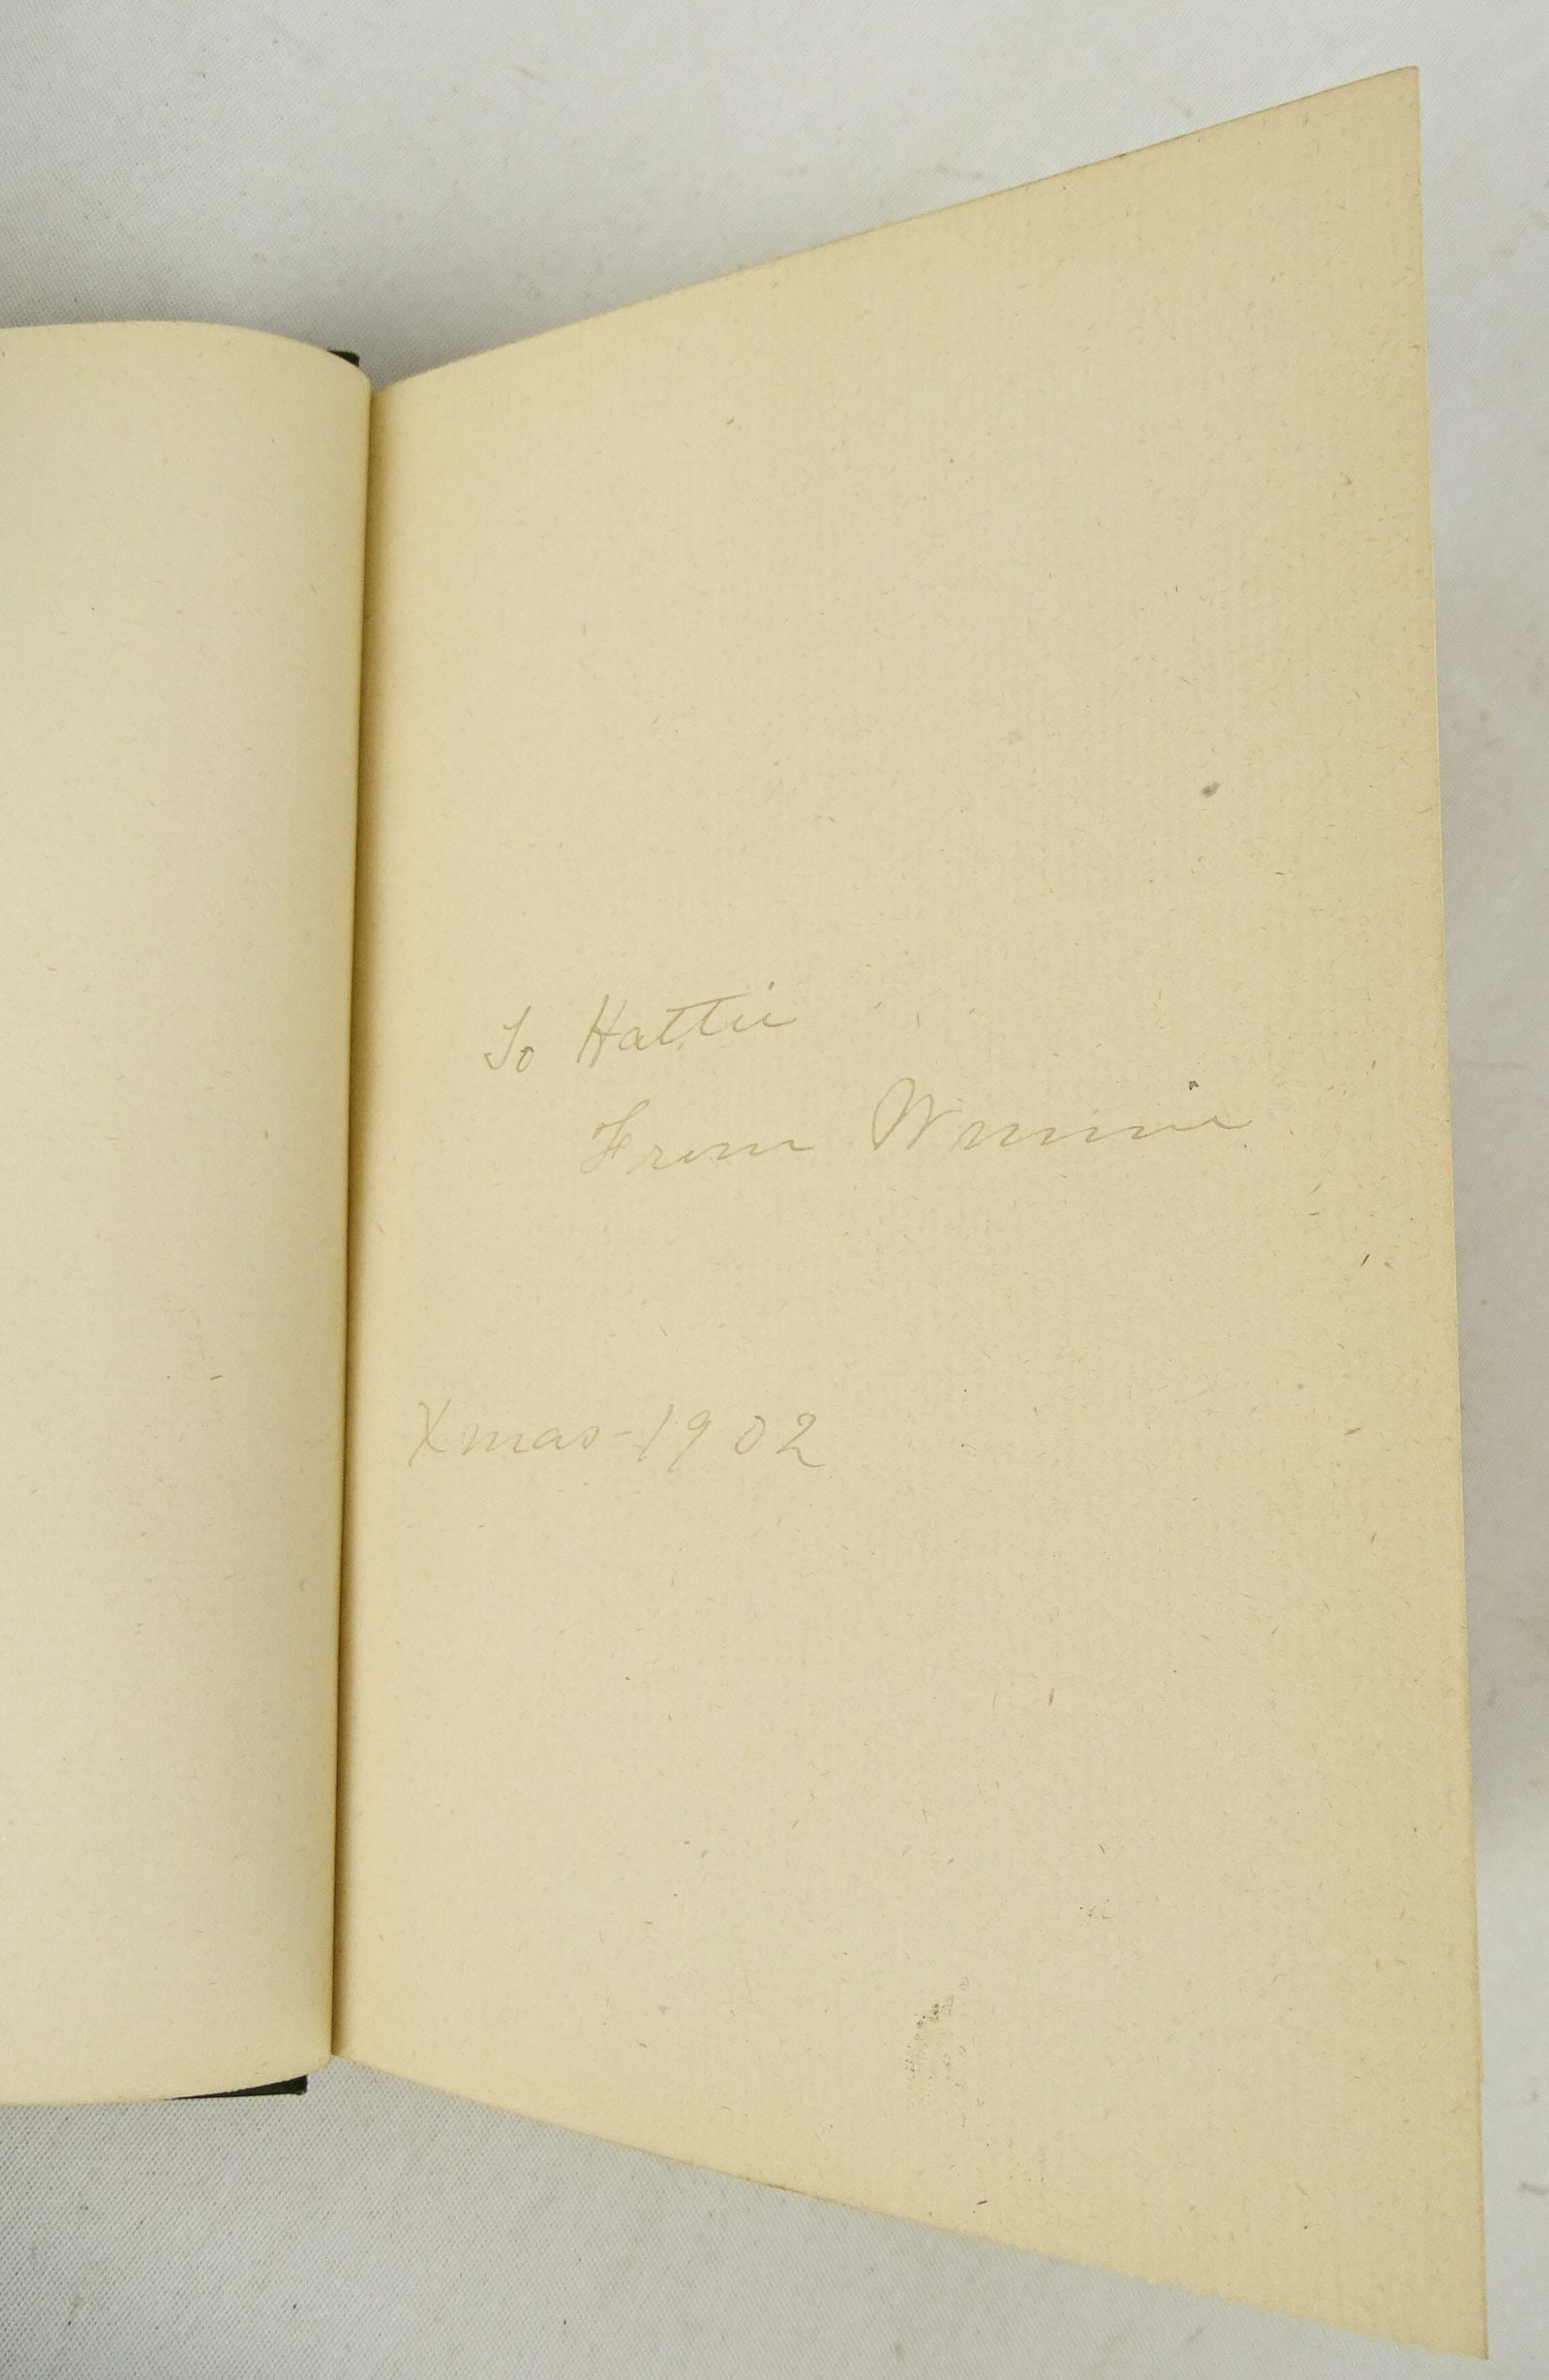 To Hattie
From Winnie
Xmas-1902